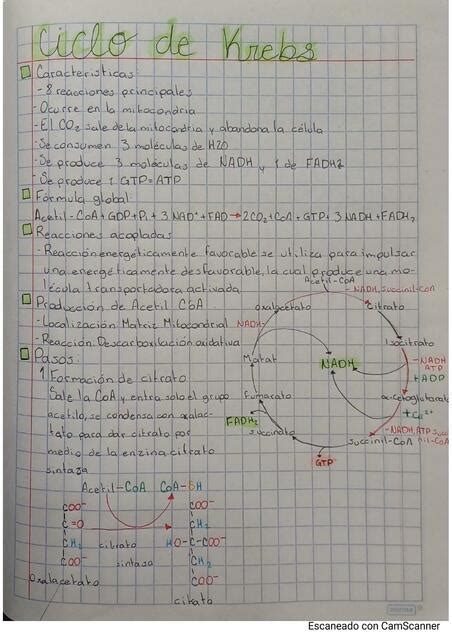 Ciclo de Krebs
Caracteristicas:
- 8 reacciones principales
- Ocurre en la mitocondria
- El CO2 sale de la mitocondria y abandona la célula
- Se consumen 3 moléculas de H2O
- Se produce 3 moléculas de NADH y 1 de FADH2
- Se produce 1 GTP = ATP
Fórmula global:
Acetil-CoA + GDP + Pi + 3 NAD+ + FAD → 2CO2 + CoA + GTP + 3 NADH + FADH2
Reacciones acopladas
- Reacción energéticamente favorable se utiliza para impulsar
una energéticamente desfavorable, la cual produce una mo-
lécula transportadora activada
Producción de Acetil CoA
- Localización: Matriz Mitocondrial
- Reacción: Descarboxilación oxidativa
Pasos:
1 Formación de citrato
Sale la CoA y entra solo el grupo
acetilo, se condensa con oxalac-
tato para dar citrato por
medio de la enzina citrato
sintaza
Acetil-CoA
- NADH, Succinil-CoA
oxalacetato
Citrato
NADH-
Isocitrato
Malat
NADH
- NADH
ATP
+ ADP
Fumarato
α-cetoglutarato
+ Ca2+
FADH2
succinato
succinil-CoA
- NADH, ATP succ
nil-CoA
GTP
Acetil-CoA CoA-SH
COO-
C=O
CH2
COO-
Oxalacetato
citrato
sintasa
COO-
CH2
HO-C-COO-
CH2
COO-
citrato
norma
Escaneado con CamScanner